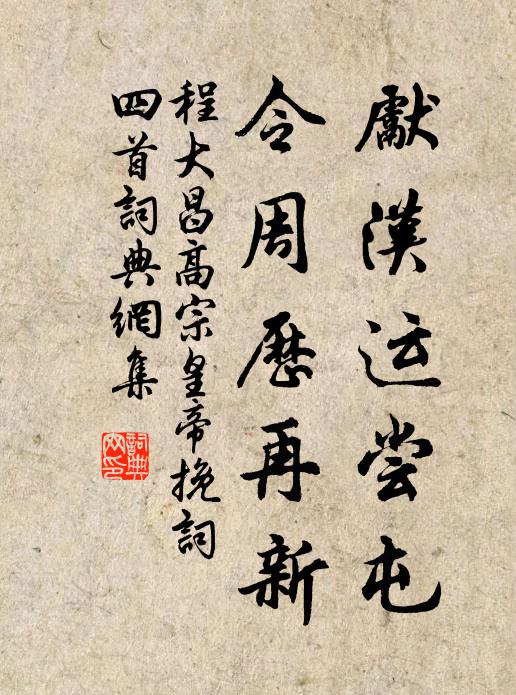 獻漢运尝屯
令周歷再新
程大昌高宗皇帝挽詞
四首詞典網集
詞典
网印